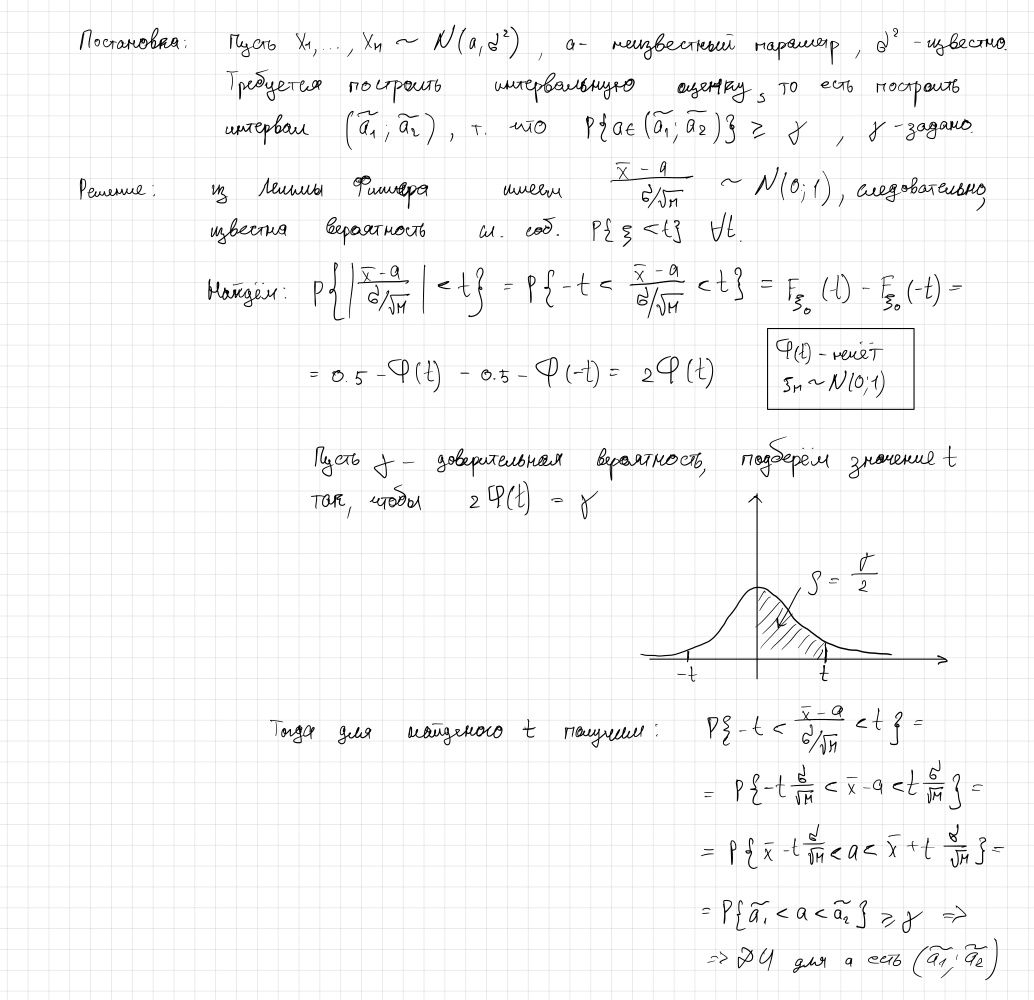 Постановка: Пусть X₁,..., Xₙ ~ N(a, σ²), a - неизвестный параметр, σ² - известно.
Требуется построить интервальную оценку, то есть построить
интервал (ã₁; ã₂), т. что P{a∈(ã₁; ã₂)} ≥ γ, γ - задано.
Решение: из Леммы Фишера имеем (x̄ - a)/(σ/√n) ~ N(0;1), следовательно,
известна вероятность сл. соб. P{ξ < t} ∀t.
Найдём: P{|(x̄ - a)/(σ/√n)| < t} = P{-t < (x̄ - a)/(σ/√n) < t} = F_ξ₀(t) - F_ξ₀(-t) =
= 0.5 - Φ(t) - 0.5 - Φ(-t) = 2Φ(t)
Φ(t) - нечёт
ξₙ ~ N(0;1)
Пусть γ - доверительная вероятность, подберём значение t
так, чтобы 2Φ(t) = γ
S = γ/2
-t t
Тогда для найденого t получим: P{-t < (x̄ - a)/(σ/√n) < t} =
= P{-t σ/√n < x̄ - a < t σ/√n} =
= P{x̄ - t σ/√n < a < x̄ + t σ/√n} =
= P{ã₁ < a < ã₂} ≥ γ =>
=> ДИ для a есть (ã₁; ã₂)